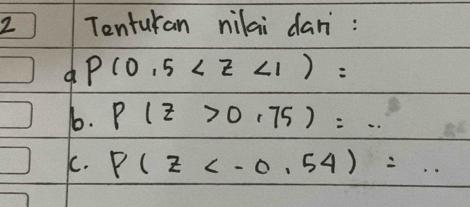 2 Tentukan nilai dari :
a P(0,5 < z < 1) =
b. P (z > 0,75) = ..
c. P ( z < -0,54) = ..